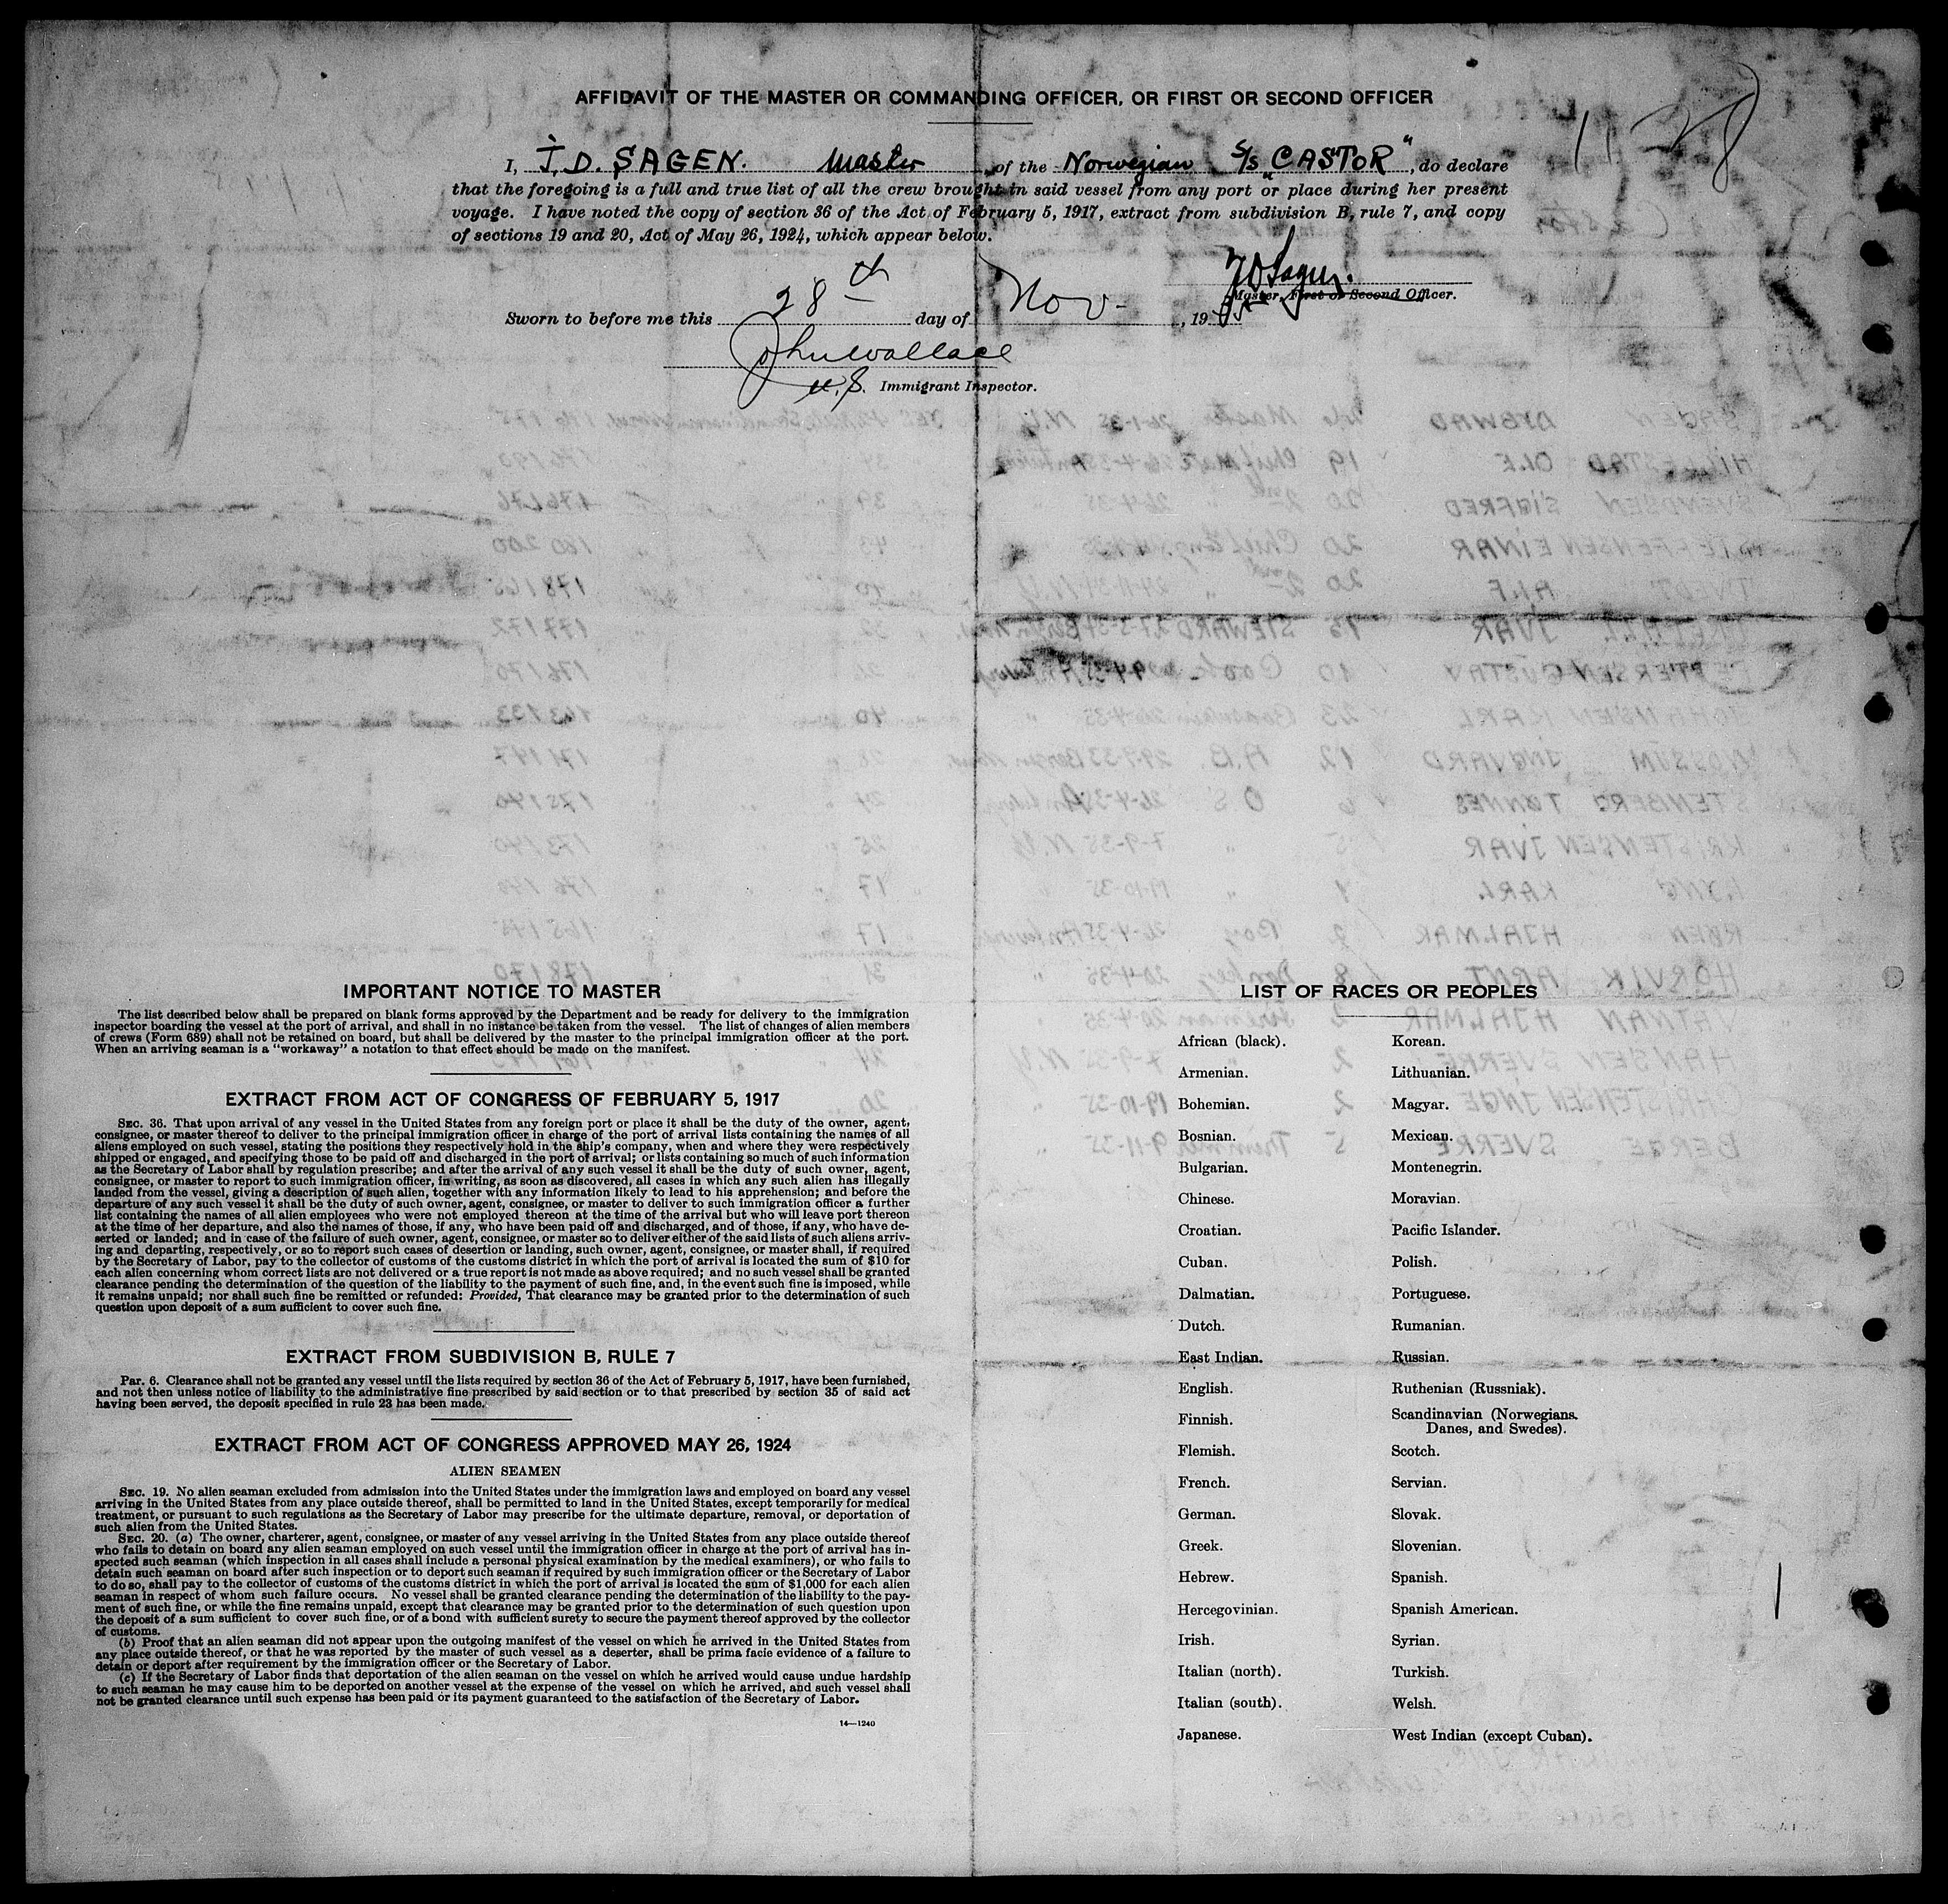 AFFIDAVIT OF THE MASTER OR COMMANDING OFFICER, OR FIRST OR SECOND OFFICER
11 28
I, J. D. SAGEN. Master of the Norwegian S/S "CASTOR", do declare
that the foregoing is a full and true list of all the crew brought in said vessel from any port or place during her present
voyage. I have noted the copy of section 36 of the Act of February 5, 1917, extract from subdivision B, rule 7, and copy
of sections 19 and 20, Act of May 26, 1924, which appear below.
JDSagen.
Master, First or Second Officer.
Sworn to before me this 28th day of Nov- , 1935
John Wallace
U.S. Immigrant Inspector.
IMPORTANT NOTICE TO MASTER
The list described below shall be prepared on blank forms approved by the Department and be ready for delivery to the immigration
inspector boarding the vessel at the port of arrival, and shall in no instance be taken from the vessel. The list of changes of alien members
of crews (Form 689) shall not be retained on board, but shall be delivered by the master to the principal immigration officer at the port.
When an arriving seaman is a "workaway" a notation to that effect should be made on the manifest.
EXTRACT FROM ACT OF CONGRESS OF FEBRUARY 5, 1917
SEC. 36. That upon arrival of any vessel in the United States from any foreign port or place it shall be the duty of the owner, agent,
consignee, or master thereof to deliver to the principal immigration officer in charge of the port of arrival lists containing the names of all
aliens employed on such vessel, stating the positions they respectively hold in the ship's company, when and where they were respectively
shipped or engaged, and specifying those to be paid off and discharged in the port of arrival; or lists containing so much of such information
as the Secretary of Labor shall by regulation prescribe; and after the arrival of any such vessel it shall be the duty of such owner, agent,
consignee, or master to report to such immigration officer, in writing, as soon as discovered, all cases in which any such alien has illegally
landed from the vessel, giving a description of such alien, together with any information likely to lead to his apprehension; and before the
departure of any such vessel it shall be the duty of such owner, agent, consignee, or master to deliver to such immigration officer a further
list containing the names of all alien employees who were not employed thereon at the time of the arrival but who will leave port thereon
at the time of her departure, and also the names of those, if any, who have been paid off and discharged, and of those, if any, who have de-
serted or landed; and in case of the failure of such owner, agent, consignee, or master so to deliver either of the said lists of such aliens arriv-
ing and departing, respectively, or so to report such cases of desertion or landing, such owner, agent, consignee, or master shall, if required
by the Secretary of Labor, pay to the collector of customs of the customs district in which the port of arrival is located the sum of $10 for
each alien concerning whom correct lists are not delivered or a true report is not made as above required; and no such vessel shall be granted
clearance pending the determination of the question of the liability to the payment of such fine, and, in the event such fine is imposed, while
it remains unpaid; nor shall such fine be remitted or refunded: Provided, That clearance may be granted prior to the determination of such
question upon deposit of a sum sufficient to cover such fine.
EXTRACT FROM SUBDIVISION B, RULE 7
Par. 6. Clearance shall not be granted any vessel until the lists required by section 36 of the Act of February 5, 1917, have been furnished,
and not then unless notice of liability to the administrative fine prescribed by said section or to that prescribed by section 35 of said act
having been served, the deposit specified in rule 23 has been made.
EXTRACT FROM ACT OF CONGRESS APPROVED MAY 26, 1924
ALIEN SEAMEN
SEC. 19. No alien seaman excluded from admission into the United States under the immigration laws and employed on board any vessel
arriving in the United States from any place outside thereof, shall be permitted to land in the United States, except temporarily for medical
treatment, or pursuant to such regulations as the Secretary of Labor may prescribe for the ultimate departure, removal, or deportation of
such alien from the United States.
SEC. 20. (a) The owner, charterer, agent, consignee, or master of any vessel arriving in the United States from any place outside thereof
who fails to detain on board any alien seaman employed on such vessel until the immigration officer in charge at the port of arrival has in-
spected such seaman (which inspection in all cases shall include a personal physical examination by the medical examiners), or who fails to
detain such seaman on board after such inspection or to deport such seaman if required by such immigration officer or the Secretary of Labor
to do so, shall pay to the collector of customs of the customs district in which the port of arrival is located the sum of $1,000 for each alien
seaman in respect of whom such failure occurs. No vessel shall be granted clearance pending the determination of the liability to the pay-
ment of such fine, or while the fine remains unpaid, except that clearance may be granted prior to the determination of such question upon
the deposit of a sum sufficient to cover such fine, or of a bond with sufficient surety to secure the payment thereof approved by the collector
of customs.
(b) Proof that an alien seaman did not appear upon the outgoing manifest of the vessel on which he arrived in the United States from
any place outside thereof, or that he was reported by the master of such vessel as a deserter, shall be prima facie evidence of a failure to
detain or deport after requirement by the immigration officer or the Secretary of Labor.
(c) If the Secretary of Labor finds that deportation of the alien seaman on the vessel on which he arrived would cause undue hardship
to such seaman he may cause him to be deported on another vessel at the expense of the vessel on which he arrived, and such vessel shall
not be granted clearance until such expense has been paid or its payment guaranteed to the satisfaction of the Secretary of Labor.
14—1240
LIST OF RACES OR PEOPLES
African (black).
Armenian.
Bohemian.
Bosnian.
Bulgarian.
Chinese.
Croatian.
Cuban.
Dalmatian.
Dutch.
East Indian.
English.
Finnish.
Flemish.
French.
German.
Greek.
Hebrew.
Hercegovinian.
Irish.
Italian (north).
Italian (south).
Japanese.
Korean.
Lithuanian.
Magyar.
Mexican.
Montenegrin.
Moravian.
Pacific Islander.
Polish.
Portuguese.
Rumanian.
Russian.
Ruthenian (Russniak).
Scandinavian (Norwegians,
Danes, and Swedes).
Scotch.
Servian.
Slovak.
Slovenian.
Spanish.
Spanish American.
Syrian.
Turkish.
Welsh.
West Indian (except Cuban).